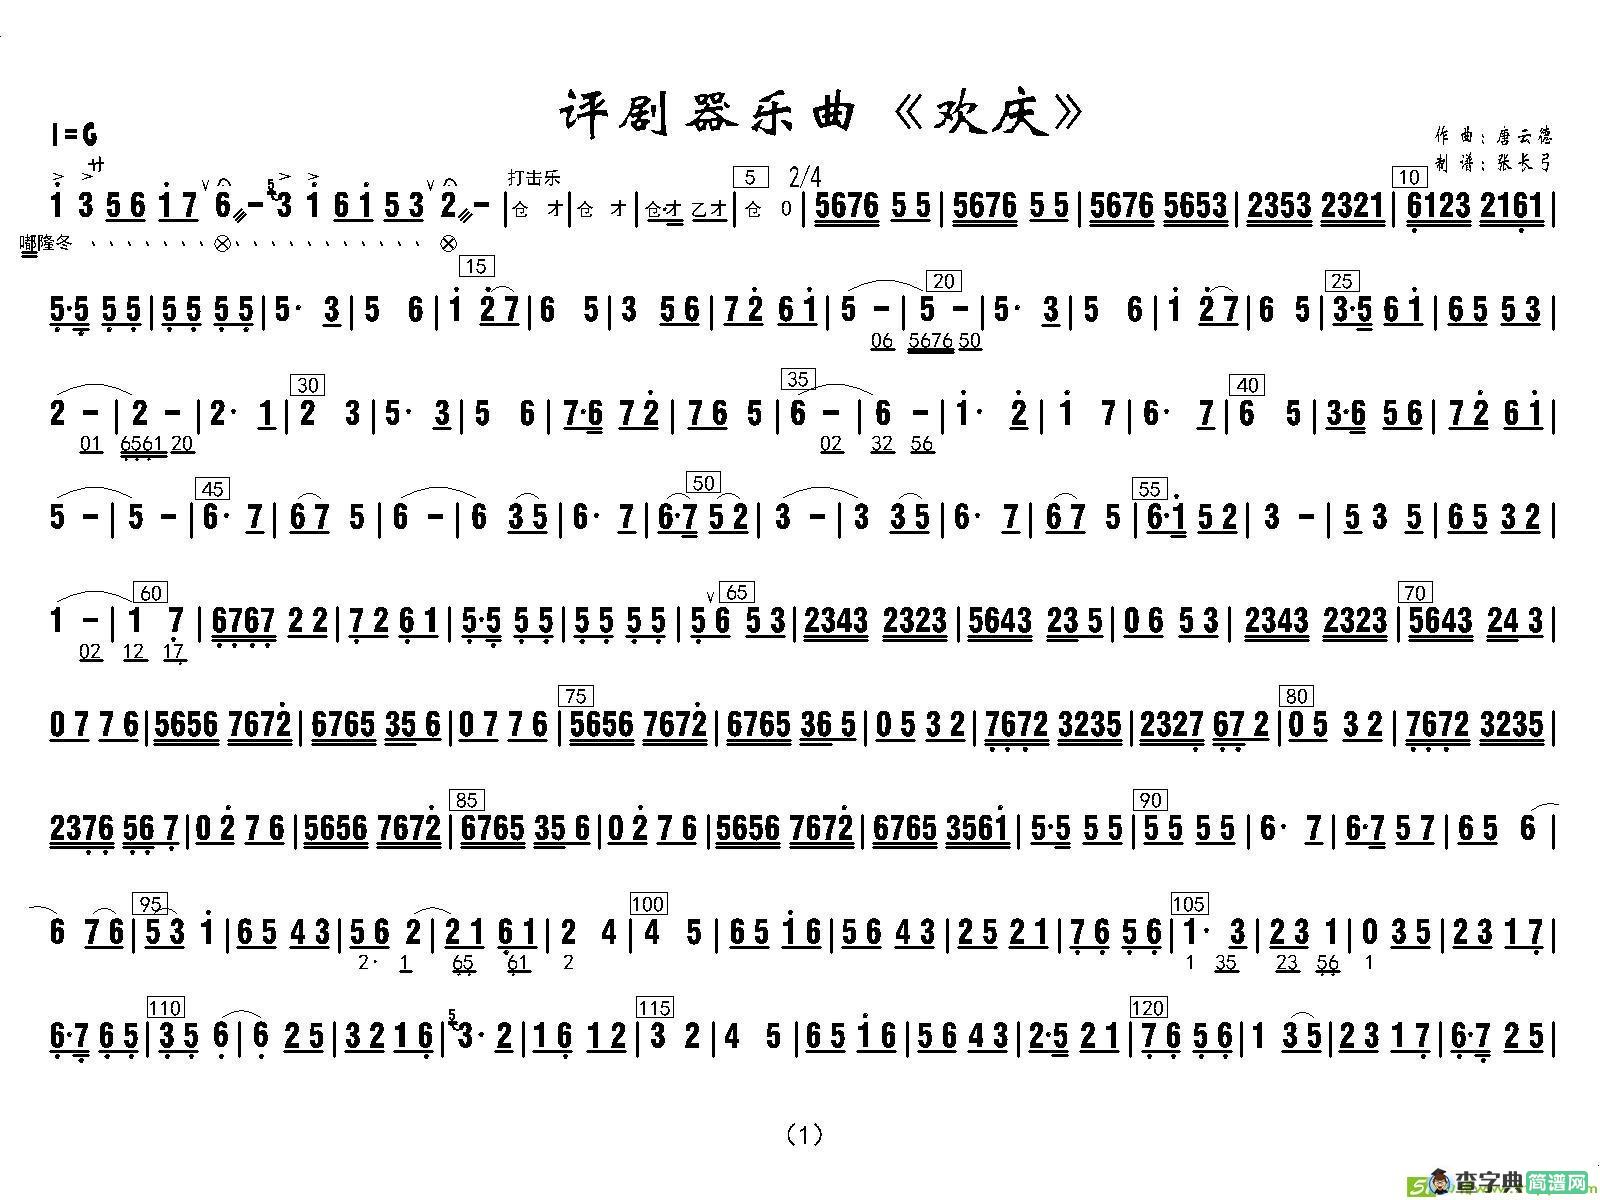 评剧器乐曲《欢庆》
1=G
作曲：唐云德
制谱：张长弓
廾 打击乐 5 2/4 10
1 3 56 17 6 - 5 3 1 61 53 2 - | 仓 才 | 仓 才 | 仓·才 乙才 | 仓 0 | 5676 55 | 5676 55 | 5676 5653 | 2353 2321 | 6123 2161 |
嘟隆冬 、、、、、、、⊗、、、、、、、、、、、⊗
15 20 25
5·5 55 | 55 55 | 5· 3 | 5 6 | 1 27 | 6 5 | 3 56 | 72 61 | 5 - | 5 - | 5· 3 | 5 6 | 1 27 | 6 5 | 3·5 61 | 65 53 |
06 5676 50
30 35 40
2 - | 2 - | 2· 1 | 2 3 | 5· 3 | 5 6 | 7·6 72 | 76 5 | 6 - | 6 - | 1· 2 | 1 7 | 6· 7 | 6 5 | 3·6 56 | 72 61 |
01 6561 20 02 32 56
45 50 55
5 - | 5 - | 6· 7 | 67 5 | 6 - | 6 35 | 6· 7 | 6·7 52 | 3 - | 3 35 | 6· 7 | 67 5 | 6·1 52 | 3 - | 5 3 5 | 65 32 |
60 65 70
1 - | 1 7 | 6767 22 | 72 61 | 5·5 55 | 55 55 | 56 53 | 2343 2323 | 5643 23 5 | 06 53 | 2343 2323 | 5643 24 3 |
02 12 17
75 80
07 76 | 5656 7672 | 6765 35 6 | 07 76 | 5656 7672 | 6765 36 5 | 05 32 | 7672 3235 | 2327 67 2 | 05 32 | 7672 3235 |
85 90
2376 56 7 | 02 76 | 5656 7672 | 6765 35 6 | 02 76 | 5656 7672 | 6765 3561 | 5·5 55 | 55 55 | 6· 7 | 6·7 57 | 65 6 |
95 100 105
6 76 | 53 1 | 65 43 | 56 2 | 21 61 | 2 4 | 4 5 | 65 16 | 56 43 | 25 21 | 76 56 | 1· 3 | 23 1 | 0 35 | 23 17 |
2· 1 65 61 2 1 35 23 56 1
110 115 120
6·7 65 | 35 6 | 6 25 | 32 16 | 5 3· 2 | 16 12 | 3 2 | 4 5 | 65 16 | 56 43 | 2·5 21 | 76 56 | 1 35 | 23 17 | 6·7 25 |
(1)
查字典 简谱网